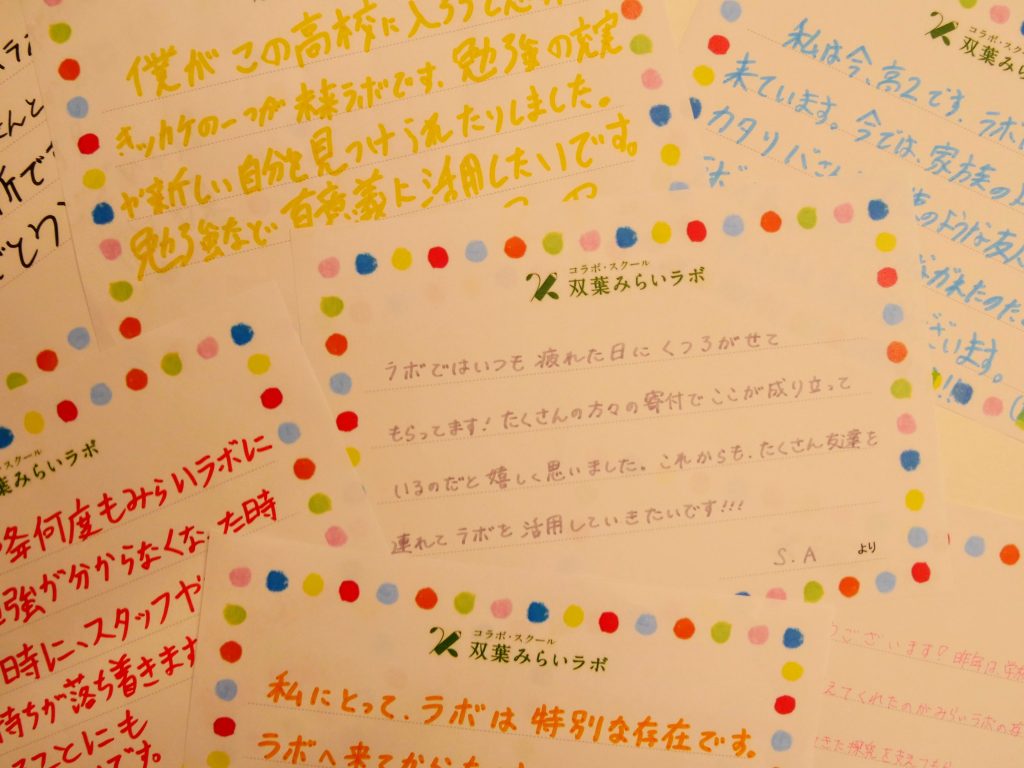 僕がこの高校に入ろうと思
きッカケの一つが未来ラボです。勉強の充実
や新しい自分を見つけられたりしました。
勉強などで有意義に活用したいです。
コラボ・スクール
双葉みら
私は今、高2です。ラボ
来ています。今では、家族の
カタリバさ
のような友人
ざいます。
!!!
コラボ・スクール
双葉みらいラボ
ラボではいつも疲れた日にくつろがせて
もらってます!たくさんの方々の寄付でここが成り立って
いるのだと嬉しく思いました。これからも、たくさん友達を
連れてラボを活用していきたいです!!!
S.A より
スクール
葉みらいラボ
何度もみらいラボに
強が分からなくなった時
時に、スタッフや
持ちが落ち着きます
ことにも
です。
コラボ・スクール
双葉みらいラボ
私にとって、ラボは特別な存在です。
ラボへ来てから
うございます!昨年は学
えてくれたのがみらいラボの